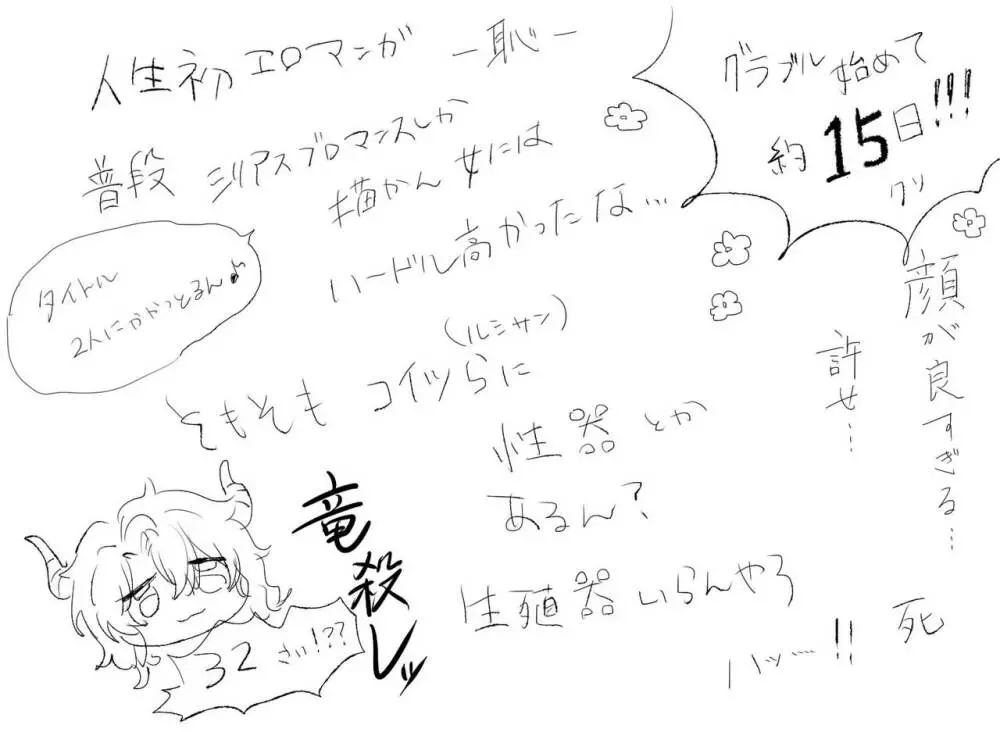 人生初エロマンガ ー恥ー
普段 シリアスブロマンスしか
描かん女には
ハードル高かったな…
グラブル始めて
約15日!!!
タイトル
2人にかかっとるん♪
(ルシサン)
そもそも コイツらに
性器とか
あるん?
生殖器いらんやろ
ハッ…!!
顔が良すぎる…
許せ…
死
竜殺しッ
32さい!??